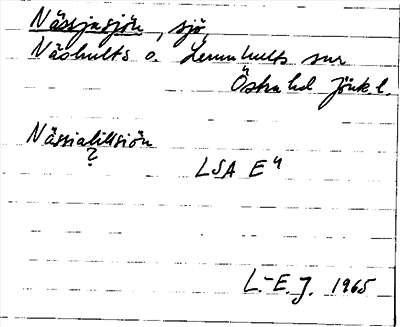 Nässjasjön, sjö,
Näshults o. Lemnhults snr
Östra hd Jönk. l.
Nässialillsiön
?
LSA E4
L.-E. J. 1965